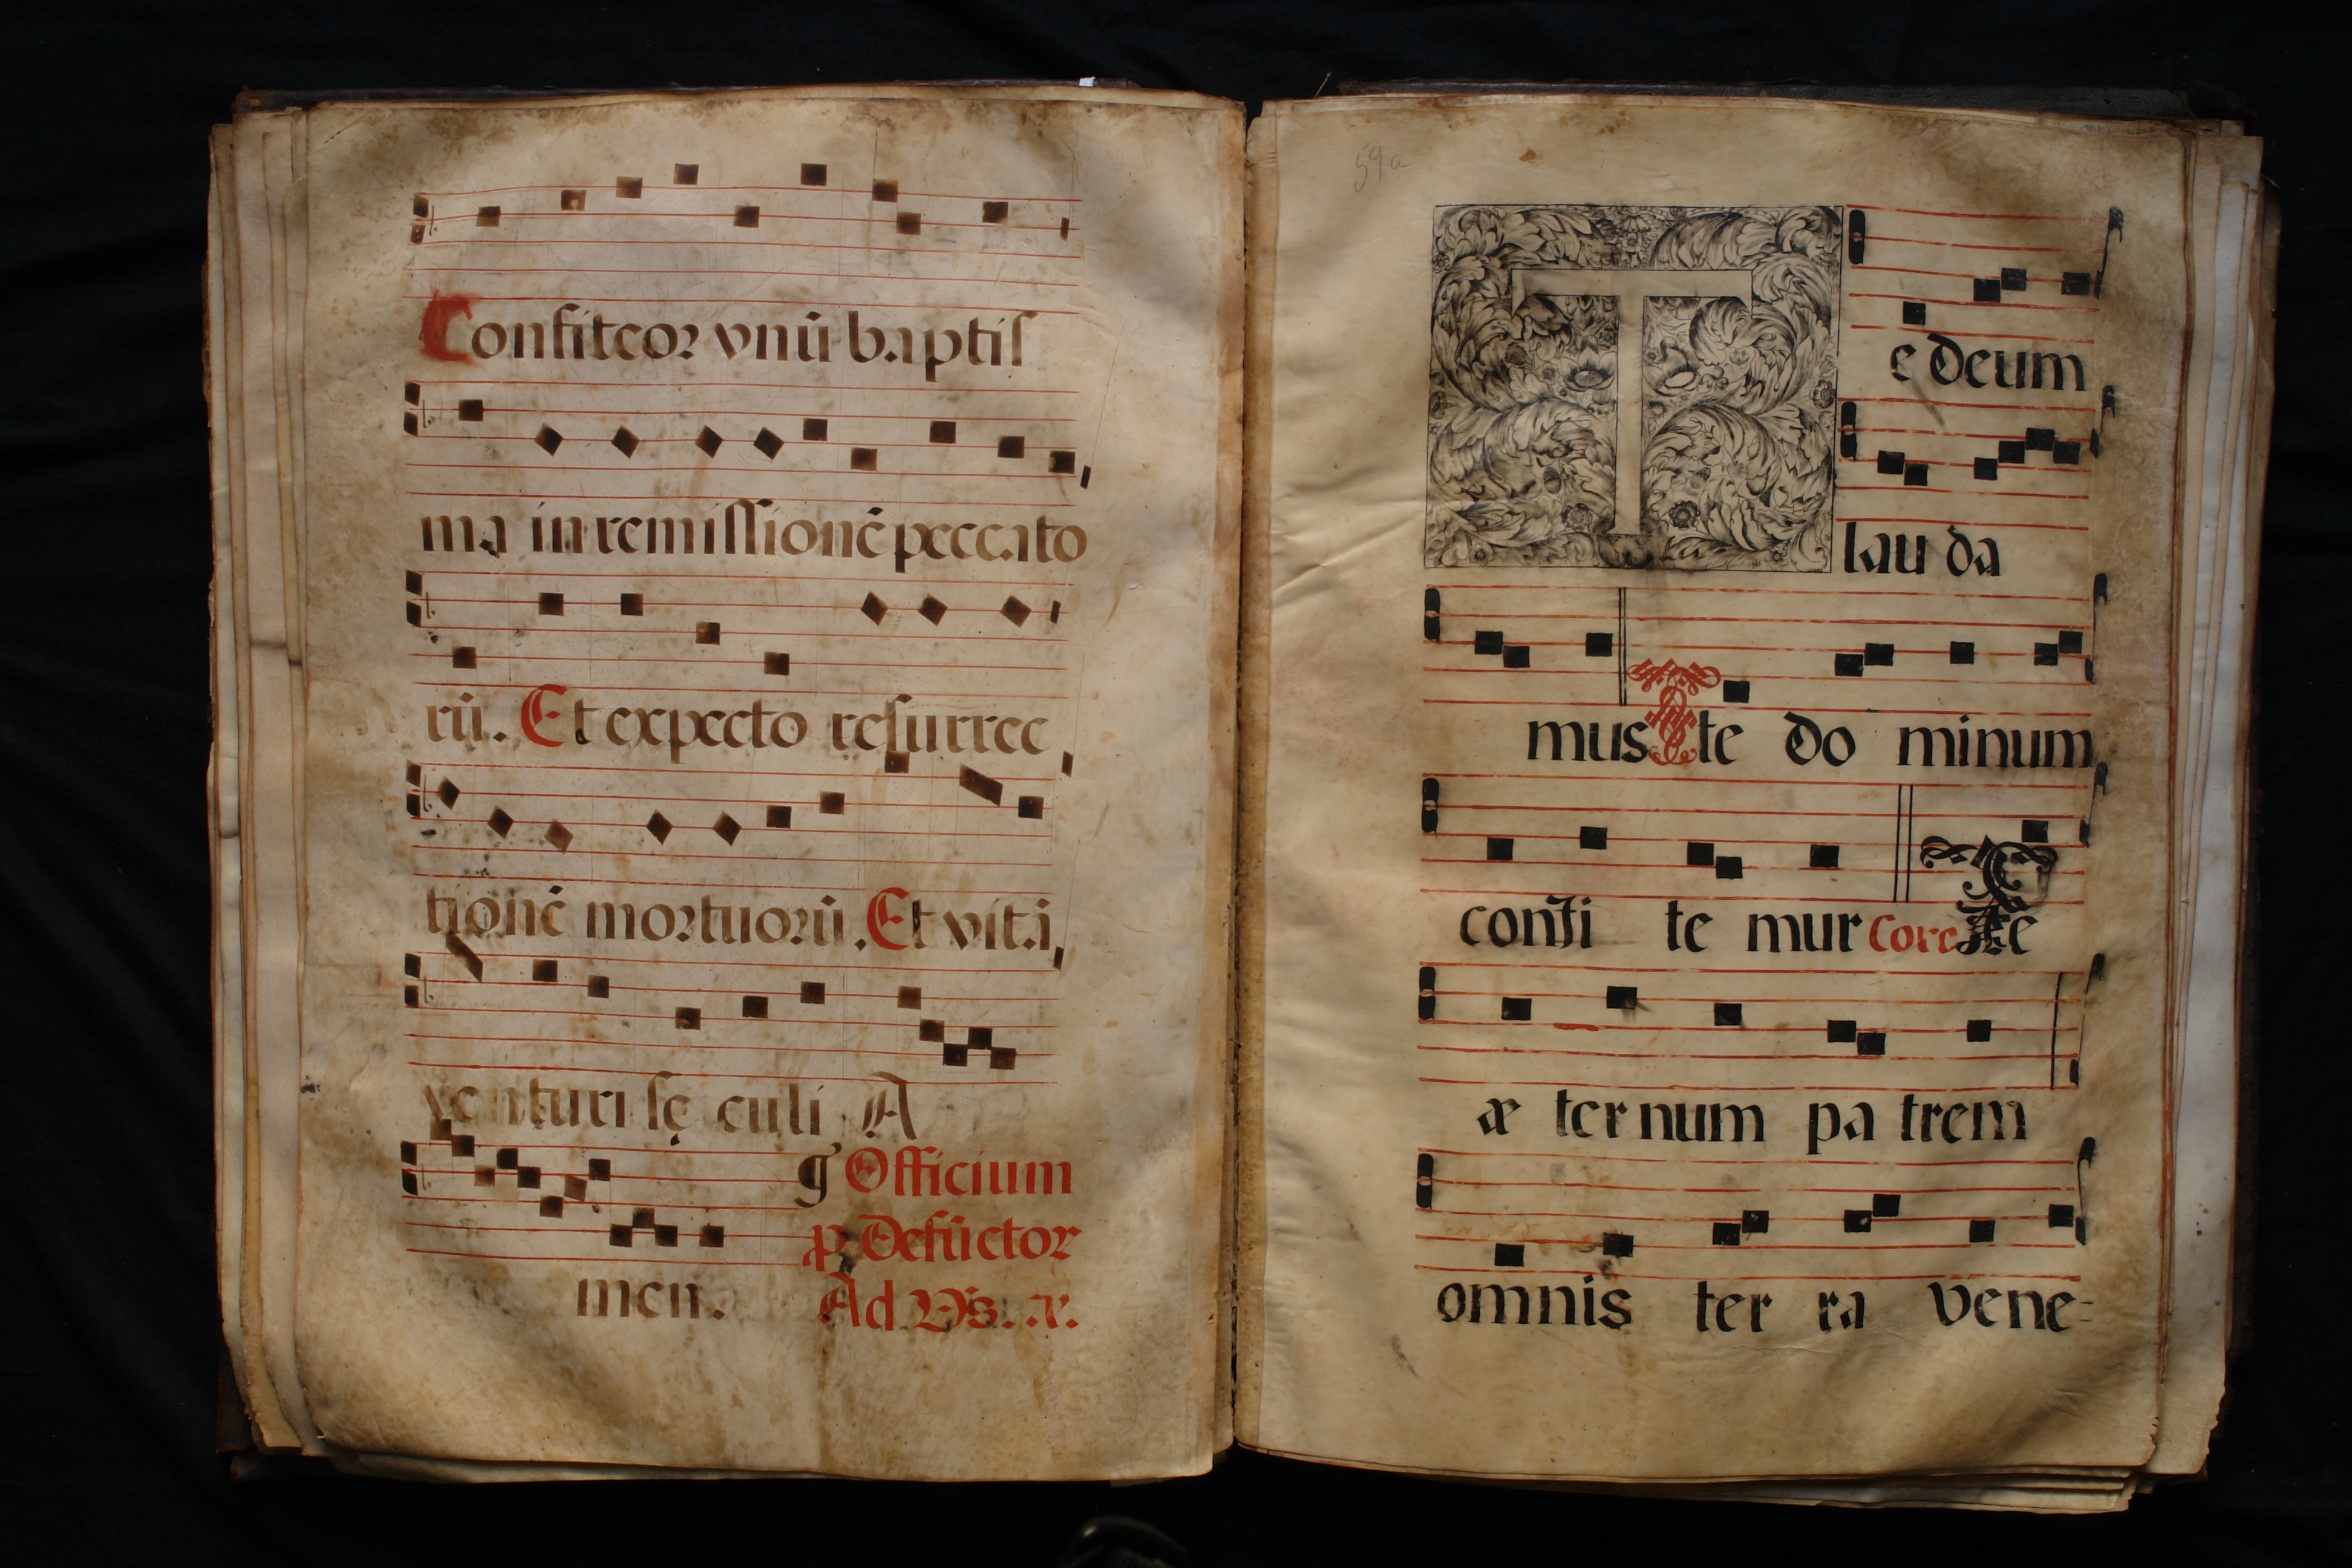 Confiteor vnū baptis
ma in remissionē peccato
rū. Et expecto resurrec
tionē mortuorū. Et vitā
venturi sę culi A
g Officium
p Defūctor
men. Ad
59a
Te deum
lau da
mus Te te do minum
confi te mur Coro Te
æ ter num pa trem
omnis ter ra vene=